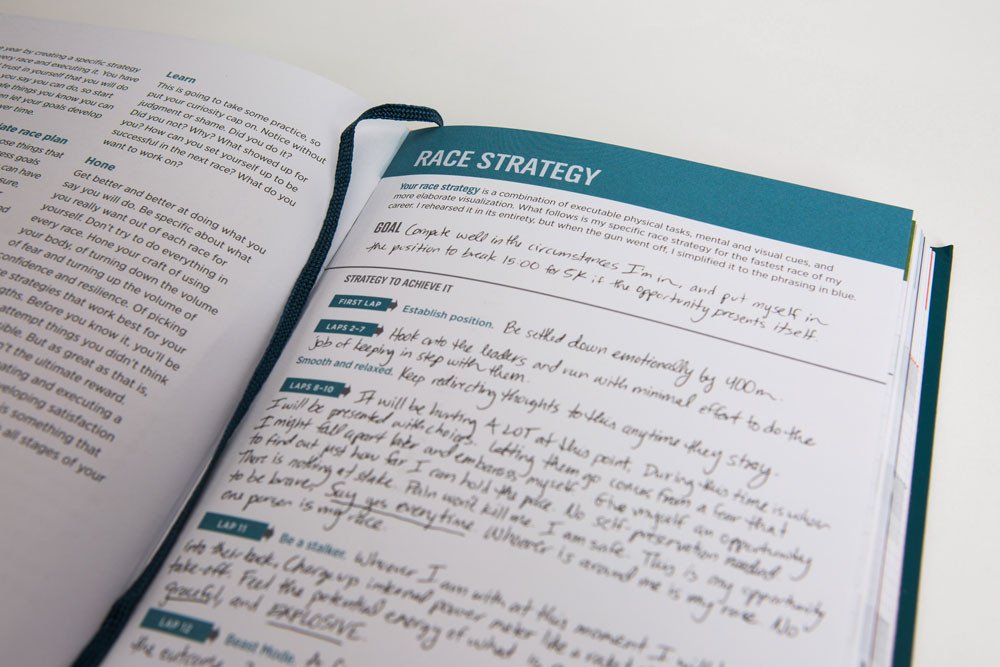 year by creating a specific strategy
very race and executing it. You have
trust in yourself that you will do
you say you can do, so start
things you know you can
let your goals develop
over time.
race plan
those things that
goals
can have
Learn
This is going to take some practice, so
put your curiosity cap on. Notice without
judgment or shame. Did you do it?
Did you not? Why? What showed up for
you? How can you set yourself up to be
successful in the next race? What do you
want to work on?
Hone
Get better and better at doing what you
say you will do. Be specific about what
you really want out of each race for
yourself. Don't try to do everything in
every race. Hone your craft of using
your body, of turning down the volume
of fear and turning up the volume of
confidence and resilience. Of picking
strategies that work best for your
Before you know it, you'll be
attempt things you didn't think
But as great as that is,
the ultimate reward.
and executing a
developing satisfaction
is something that
all stages of your
RACE STRATEGY
Your race strategy is a combination of executable physical tasks, mental and visual cues, and
more elaborate visualization. What follows is my specific race strategy for the fastest race of my
career. I rehearsed it in its entirety, but when the gun went off, I simplified it to the phrasing in blue.
GOAL Compete well in the circumstances I'm in, and put myself in
the position to break 15:00 for 5K if the opportunity presents itself.
STRATEGY TO ACHIEVE IT
FIRST LAP Establish position. Be settled down emotionally by 400m.
LAPS 2-7 Hook onto the leaders and run with minimal effort to do the
job of keeping in step with them.
Smooth and relaxed. Keep redirecting thoughts to this anytime they stray.
LAPS 8-10 It will be hurting A LOT at this point. During this time is when
I will be presented with choices. Letting them go comes from a fear that
I might fall apart later and embarrass myself. Give myself an opportunity
to find out just how far I can hold the pace. No self-preservation needed.
There is nothing at stake. Pain won't kill me. I am safe. This is my opportunity
to be brave. Say yes everytime. Whoever is around me is my race. No
one person is my race.
LAP 11 Be a stalker. Whoever I am with at this moment, I will
into their back. Charge up internal power meter like a rocket
take-off. Feel the potential energy of what is
graceful, and EXPLOSIVE.
LAP 12 Beast Mode.
the outcome